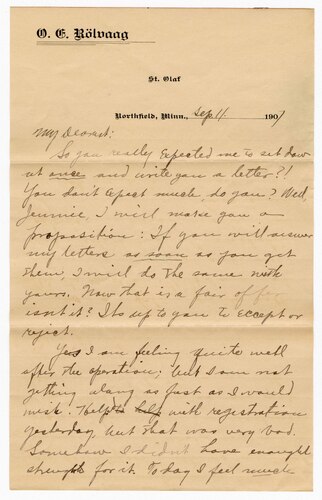 O. E. Rölvaag
St. Olaf
Northfield, Minn., Sep 11. 1907
My Dearest:
So you really expected me to sit down
at once and write you a letter?!
You don't expect much, do you? Well,
Jennie, I will make you a
proposition: If you will answer
my letters as soon as you get
them, I will do the same with
yours. Now that is a fair offer
isn't it? Its up to you to eccept or
reject.
Yes I am feeling quite well
after the operation; but I am not
getting along as fast as I would
wish. Help with registration
yesterday, but that was very bad.
Somehow I didn't have enought
strength for it. Today I feel much